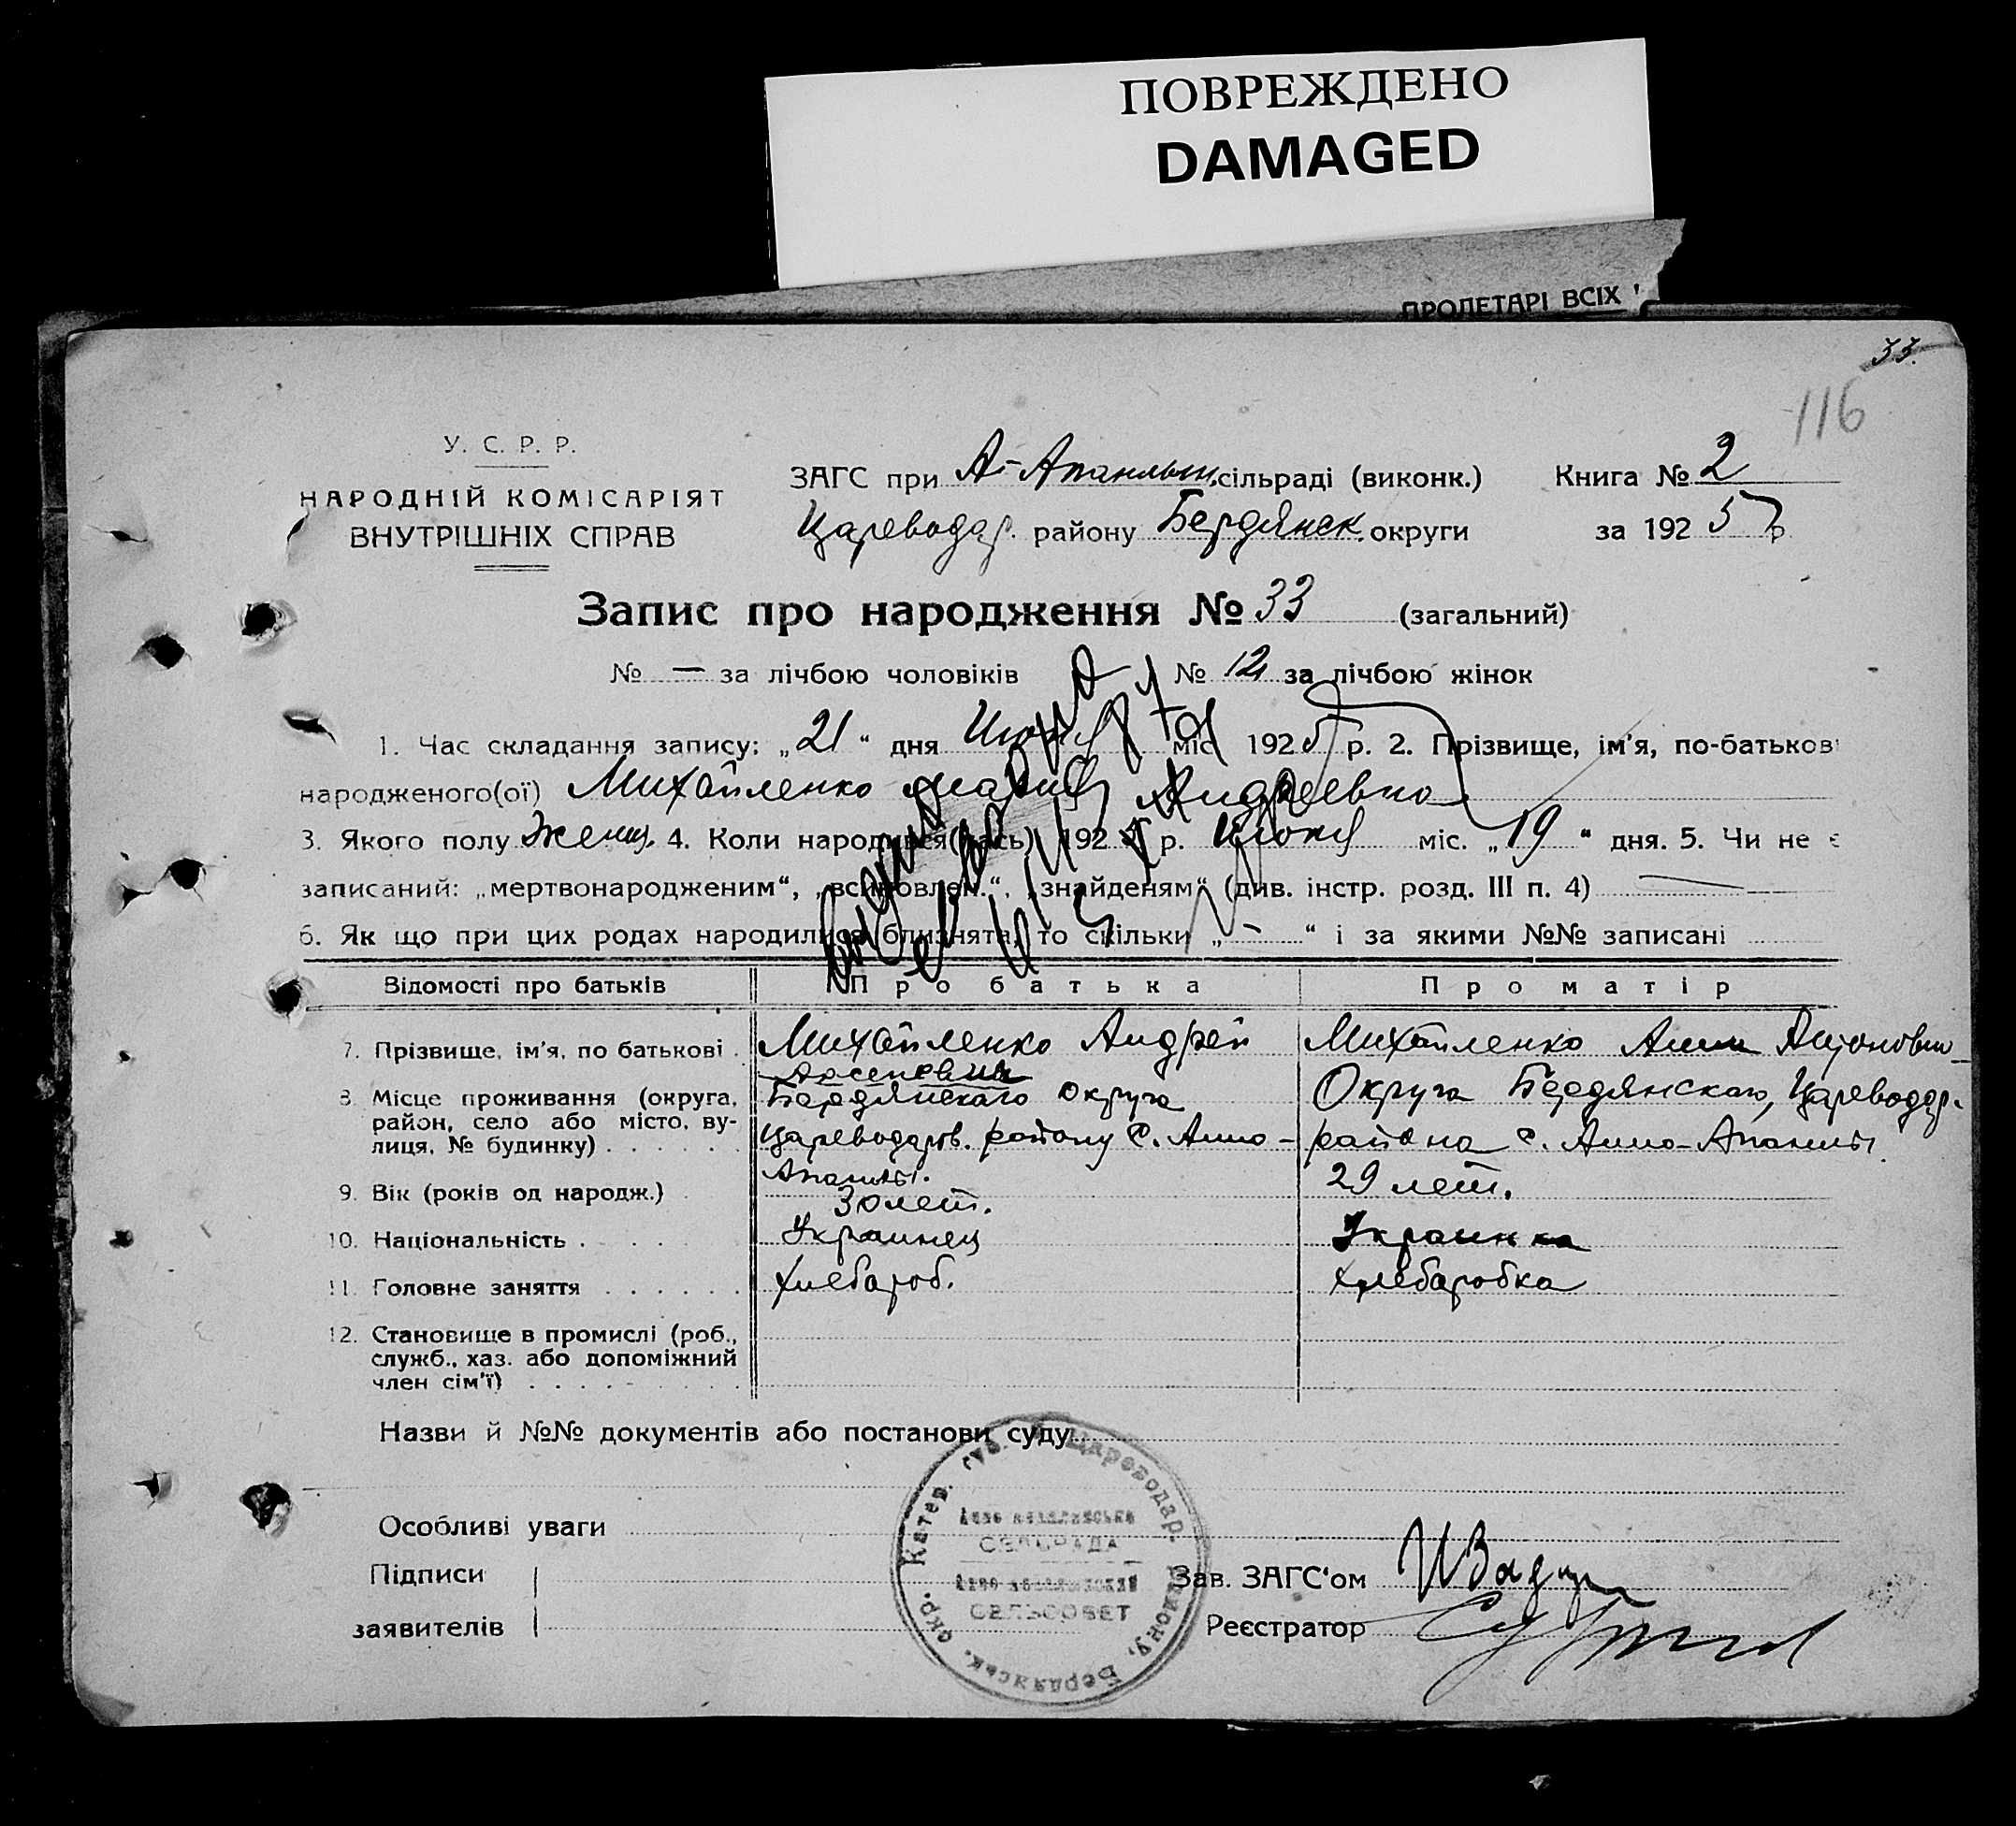 ПОВРЕЖДЕНО
DAMAGED
ПРОЛЕТАРІ ВСІХ
33.
116
У. С. Р. Р.
НАРОДНІЙ КОМІСАРІЯТ
ВНУТРІШНІХ СПРАВ
ЗАГС при А-Апанлын. сільраді (виконк.)
Цареводар. району Бердянск. округи
Книга № 2
за 1925 р
Запис про народження № 33 (загальний)
№ — за лічбою чоловіків № 12 за лічбою жінок
1. Час складання запису: „21“ дня Июня міс 1925 р. 2. Прізвище, ім'я, по-батькові
народженого(ої) Михайленко Мария Андреевна
3. Якого полу женщ. 4. Коли народився(лась) 1925 р. Июня міс. „19“ дня. 5. Чи не є
записаний: „мертвонародженим“, „всиновлен.“, „знайденям“ (див. інстр. розд. III п. 4) —
6. Як що при цих родах народилися близнята, то скільки „—“ і за якими №№ записані
Відомості про батьків Про батька Про матір
7. Прізвище, ім'я, по батькові . Михайленко Андрей Арсенович Михайленко Анна Антоновна
8. Місце проживання (округа, район, село або місто, вулиця, № будинку) . . . . . . Бердянскаго округа Цареводаров. району с. Анно-Апанлы. Округа Бердянскаго, Цареводар. района с. Анно-Апанлы.
9. Вік (років од народж.) . 30 лет. 29 лет.
10. Національність . Украинец Украинка
11. Головне заняття . . . . . . Хлебароб. хлебаробка
12. Становище в промислі (роб.,
служб., хаз. або допоміжний
член сім'ї) . . . . . . . . .
Назви й №№ документів або постанови суду
Особливі уваги
Підписи
заявителів
Катер. губ. Цареводар. району, Бердянськ. окр.
СЕЛЬРАДА
СЕЛЬСОВЕТ
Зав. ЗАГС'ом
Реєстратор